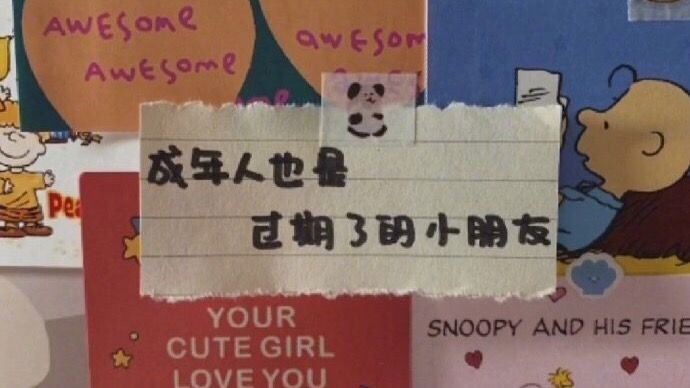 AWESOME
AWESOME
AWESOM
成年人也是
过期了的小朋友
Pea
YOUR
CUTE GIRL
LOVE YOU
SNOOPY AND HIS FRIE